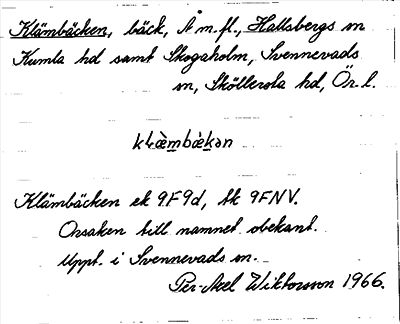 Klämbäcken, bäck, A m.fl., Hallsbergs sn
Kumla hd samt Skogaholm, Svennevads
sn, Sköllersta hd, Ör. l.
klæ̀mbæ̀kən
Klämbäcken ek 9F9d, tk 9FNV.
Orsaken till namnet obekant.
Uppt. i Svennevads sn.
Per-Axel Wiktorsson 1966.